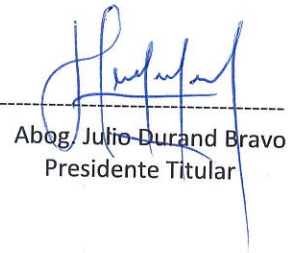 Abog. Julio Durand Bravo
Presidente Titular